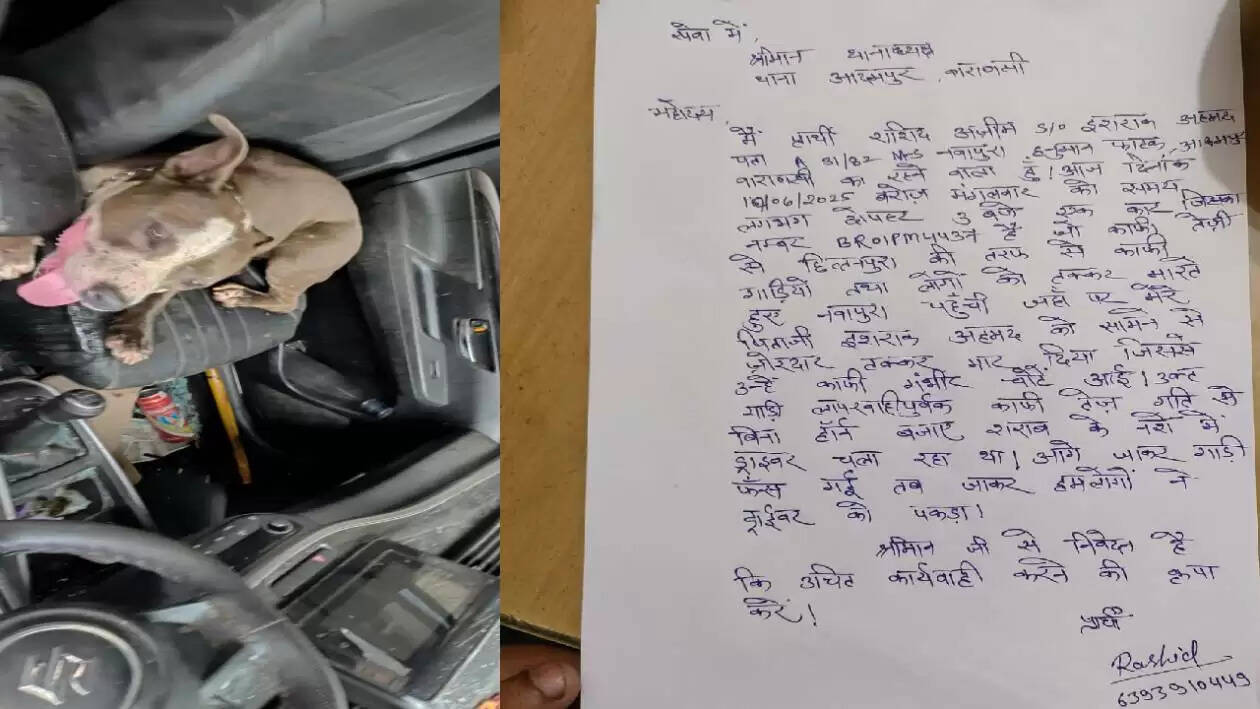 सेवा में,
श्रीमान थानाध्यक्ष
थाना आदमपुर, वाराणसी
महोदय,
में प्रार्थी राशिद अज़ीम S/O इशराक अहमद
पता A 31/82 नवापुरा हनुमान फाटक, आदमपुर
वाराणसी का रहने वाला हूं। आज दिनांक
10/06/2025 बरोज़ मंगलवार को समय
लगभग दोपहर 3 बजे एक कार जिसका
नम्बर BR01PM4437 है जो काफी तेज़ी
से छित्तनपुरा की तरफ से काफी
गाड़ियों तथा लोगों को टक्कर मारते
हुए नवापुरा पहुंची जहां पर मेरे
पिताजी इशराक अहमद को सामने से
ज़ोरदार टक्कर मार दिया जिससे
उन्हे काफी गंभीर चोटें आई। उक्त
गाड़ी लापरवाहीपूर्वक काफी तेज़ गति से
बिना हॉर्न बजाए शराब के नशे में
ड्राइवर चला रहा था। आगे जाकर गाड़ी
फंस गई तब जाकर हमलोगों ने
ड्राईवर को पकड़ा।
श्रीमान जी से निवेदन है
कि उचित कार्यवाही करने की कृपा
करें।
प्रार्थी
Rashid
6393910449